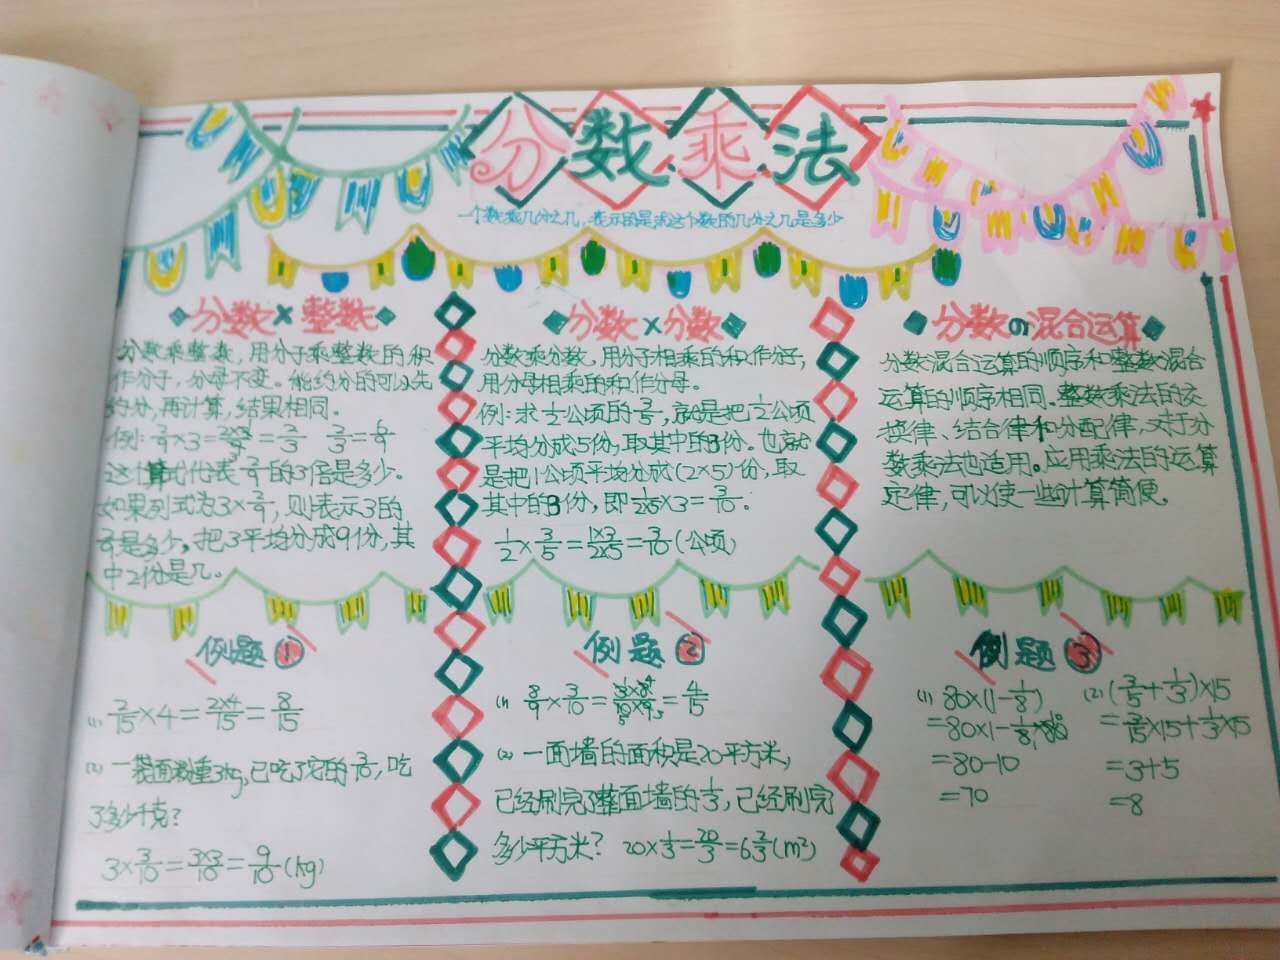 分数乘法
一个数乘几分之几,表示的是求这个数的几分之几是多少
分数×整数
分数乘整数,用分子乘整数的积
作分子,分母不变。能约分的可以先
约分,再计算,结果相同。
例: 2/9×3=
这个算式代表2/9的3倍是多少。
如果列式为3×2/9,则表示3的
2/9是多少,把3平均分成9份,其
中2份是几。
分数×分数
分数乘分数,用分子相乘的积作分子,
用分母相乘的积作分母。
例:求1/2公顷的3/5,就是把1/2公顷
平均分成5份,取其中的3份。也就
是把1公顷平均分成(2×5)份,取
其中的3份,即1/2×5×3=3/10.
1/2×3/5=1×3/2×5=3/10(公顷)
分数の混合运算
分数混合运算的顺序和整数混合
运算的顺序相同。整数乘法的交
换律、结合律和分配律,对于分
数乘法也适用。应用乘法的运算
定律,可以使一些计算简便。
例题①
(1) 2/15×4=2×4/15=8/15
(2) 一袋面粉重3kg,已吃了它的3/10,吃
了多少千克?
3×3/10=3×3/10=9/10(kg)
例题②
(1) 8/9×3/10= =4/15
(2) 一面墙的面积是20平方米,
已经刷完了整面墙的1/3,已经刷完
多少平方米? 20×1/3=20/3=6 2/3(m²)
例题③
(1) 80×(1-1/8)
=80×1-1/8×80
=80-10
=70
(2) (3/15+1/3)×15
=3/15×15+1/3×15
=3+5
=8